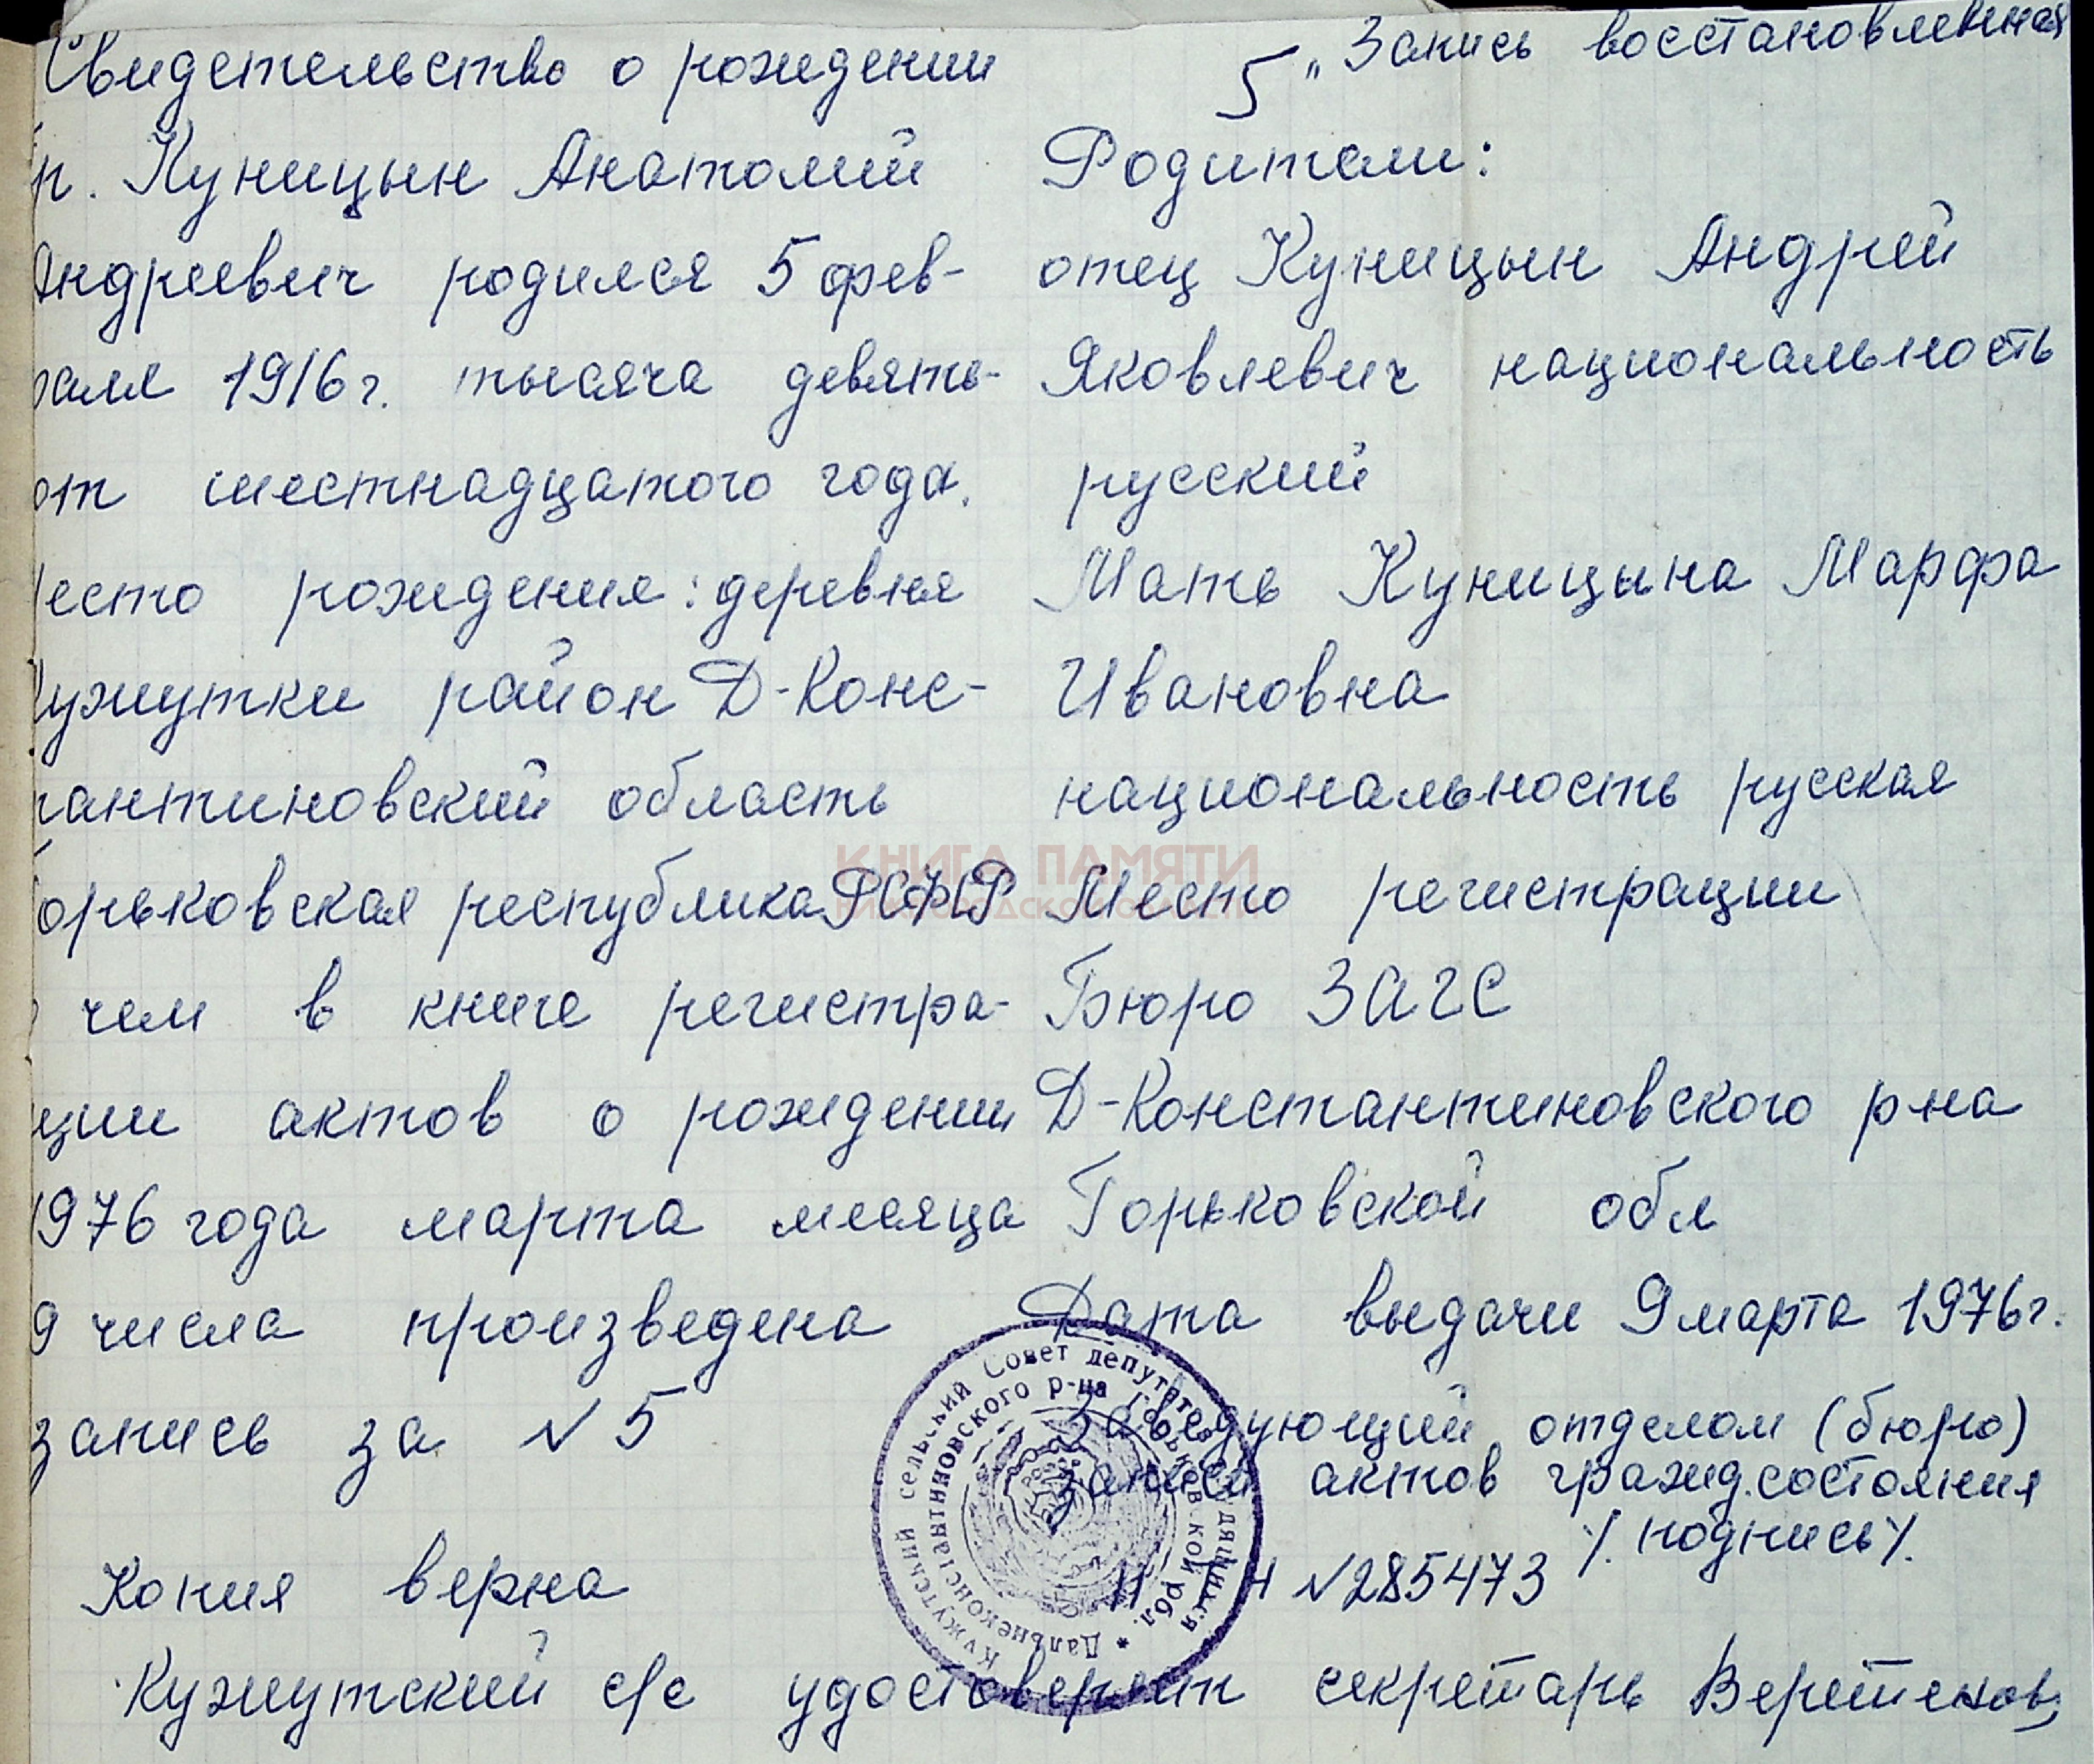 Свидетельство о рождении
гр. Куницын Анатолий
Андреевич родился 5 фев-
раля 1916 г. тысяча девять-
от шестнадцатого года.
Место рождения: деревня
Кужутки район Д-Конс-
тантиновский область
Горьковская республика РСФСР
о чем в книге регистра-
ции актов о рождении
1976 года марта месяца
9 числа произведена
запись за № 5
Копия верна
5 „Запись восстановленная
Родители:
отец Куницын Андрей
Яковлевич национальность
русский
Мать Куницына Марфа
Ивановна
национальность русская
Место регистрации
Бюро ЗАГС
Д-Константиновского р-на
Горьковской обл
Дата выдачи 9 марта 1976 г.
Заведующий отделом (бюро)
записи актов гражд. состояния
/. подпись /.
№ 285473
Кужутский с/с удостоверяет секретарь
Кужутский сельский Совет депутатов трудящихся
* Дальнеконстантиновского р-на Горьковской обл.
КНИГА ПАМЯТИ